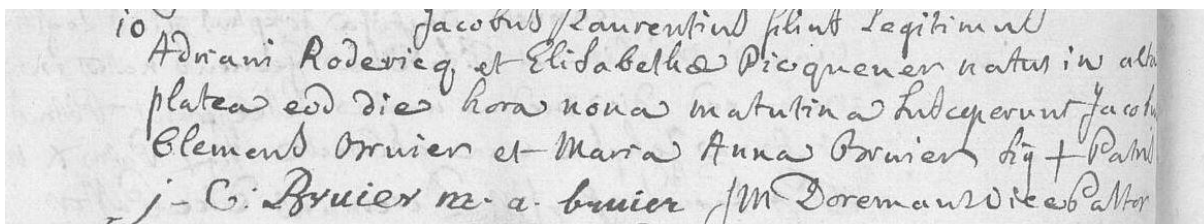 10 Jacobus Laurentius filius Legitimus
Adriani Rodericq et Elisabethæ Picquener natus in alta
platea eod die hora nona matutina Susceperunt Jacobus
Clemens Bruier et Maria Anna Bruier sig + Patris
j. C. Bruier m. a. bruier JM Doremans vice Pastor